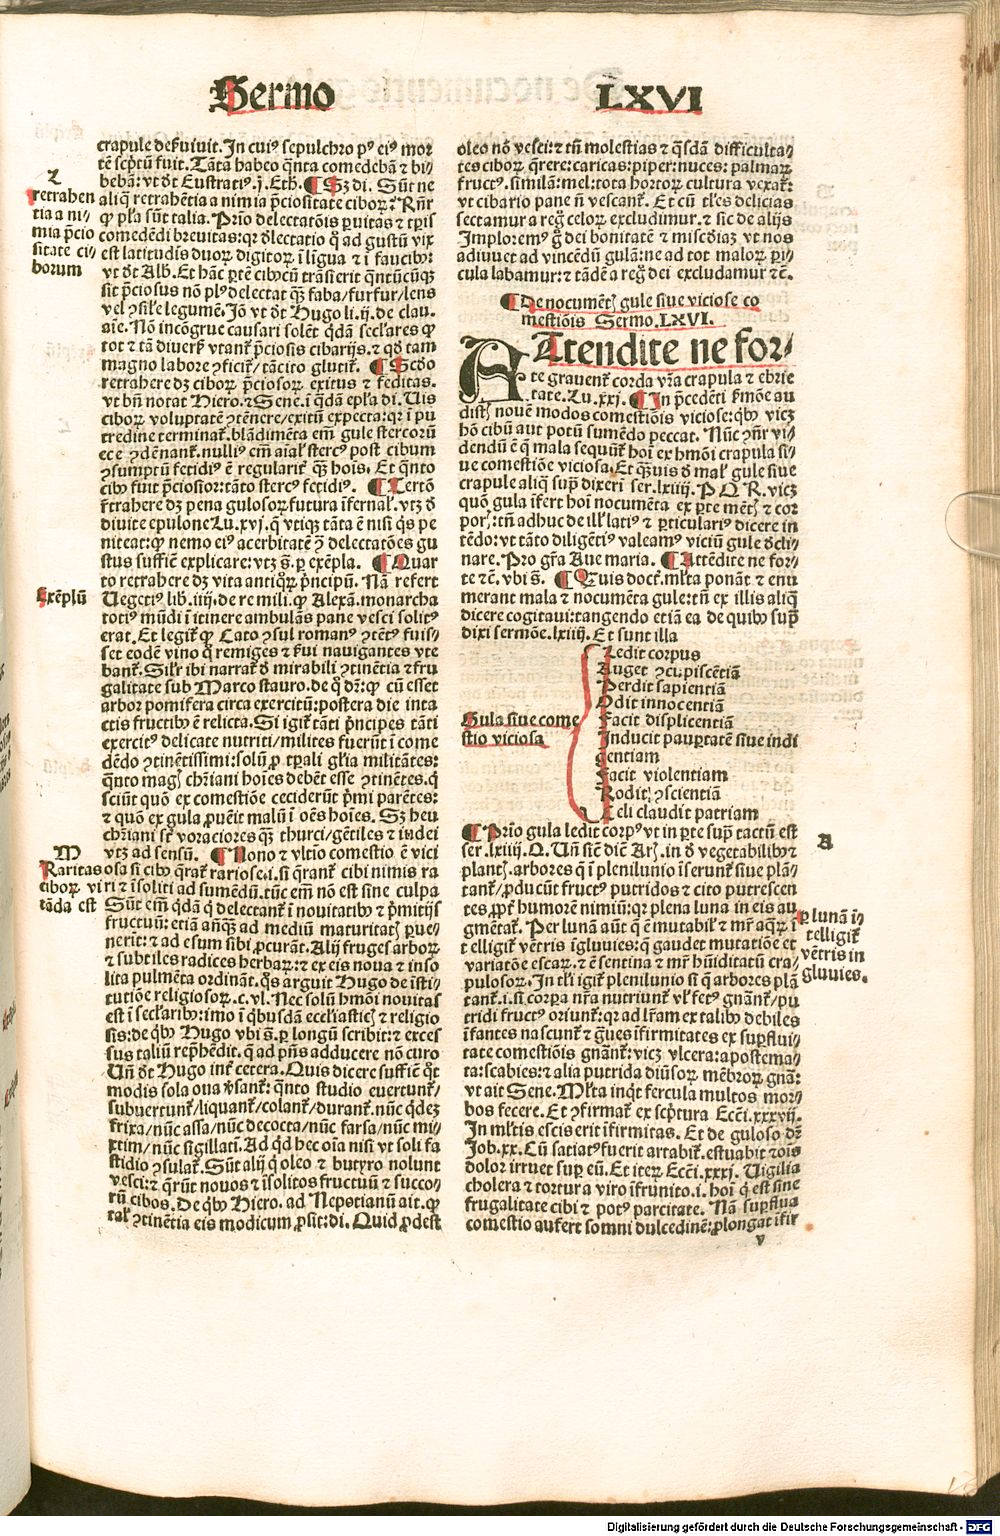 Sermo LXVI
crapule deseruiuit. In cuiꝰ sepulchro pꝰ eiꝰ mor
tē scptū fuit. Tāta habeo q̄nta comedebā ⁊ bi-
bebā: vt dt Eustratiꝰ .j. Eth. ¶ Sꝫ di. Sūt ne
aliq̄ retrahētia a nimia p̄ciositate ciboꝝ? Rn̄r
ꝙ pl'a sūt talia. Prīo delectatōis puitas ⁊ tpis
comedēdi breuitas: qꝛ dlectatio q̄ ad gustū vix
est latitudis duoꝝ digitoꝝ ī līgua ⁊ ī faucibꝰ:
vt dt Alb. Et hāc ptē cibꝰ cū trāsierit q̄ntūcūqꝫ
sit p̄ciosus nō plꝰ delectat qꝫ faba/furfur/lens
vel ꝯsile legumē. Jō vt dt Hugo li. ij. de clau.
aīe. Nō incōgrue causari solēt q̄dā secl'ares ꝙ
tot ⁊ tā diuersꝭ vtant̄ p̄ciosis cibarijs. ⁊ qd tam
magno labore ꝯficit̄/tā cito glutit̄. ¶ Scdo
retrahere dꝫ ciboꝝ p̄ciosoꝝ exitus ⁊ feditas.
vt bn̄ notat Hiero. ⁊ Sene. ī q̄dā epl'a di. Uis
ciboꝝ voluptatē ꝯtēnere/exitū expecta: qꝛ ī pu
tredine terminat̄. blādimēta em̄ gule stercorū
ece ꝯdēnant̄. nulliꝰ em̄ aīal' stercꝰ post cibum
ꝯsumptū fetidiꝰ ē regularit̄ qꝫ hoīs. Et q̄nto
cibꝰ fuit p̄ciosior: tāto stercꝰ fetidiꝰ. ¶ Tertō
retrahere dꝫ pena gulosoꝝ futura īfernal'. vtꝫ d̄
diuite epulone Lu. xvj. q̄ vtiqꝫ tāta ē nisi q̄s pe
niteat: ꝙ nemo eiꝰ acerbitatē ꝫ delectatōes gu
stus sufficit explicare: vtꝫ s̄. p exēpla. ¶ Quar
to retrahere dꝫ vita antiq̄ꝝ p̄ncipū. Nā refert
Uegetiꝰ lib. iiij. de re mili. ꝙ Alexā. monarcha
totiꝰ mūdi ī itinere ambulās pane vesci solitꝰ
erat. Et legit̄ ꝙ Cato ꝯsul romanꝰ ꝯtētꝰ fuis-
set eodē vino q̄ remiges ⁊ sui nauigantes vte
bant̄. Sil'r ibi narrat̄ d̄ mirabili ꝯtinētia ⁊ fru
galitate sub Marco stauro. de q̄ dr̄: ꝙ cū esset
arbor pomifera circa exercitū: postera die inta
ctis fructibꝰ ē relicta. Si igit̄ tāti p̄ncipes tāti
exercitꝰ delicate nutriti/milites fuerūt ī come
dēdo ꝯtinētissimi: solū ꝓ tpali gl'ia militātes:
q̄nto magꝭ chr̄iani hoīes debēt esse ꝯtinētes. q̄
sciūt quō ex comestiōe ceciderūt p̄mi parētes:
⁊ quō ex gula ꝓueīt malū ī oēs hoīes. Sꝫ heu
chr̄iani sūt voraciores qꝫ thurci/gētiles ⁊ iudei
vtꝫ ad sensū. ¶ Nono ⁊ vltīo comestio ē vici
osa si cibꝰ q̄rat̄ rariose. i. si q̄rant̄ cibi nimis ra
ri ⁊ īsoliti ad sumēdū. tūc em̄ nō est sine culpa
Sūt em̄ q̄dā q̄ delectant̄ ī nouitatibꝰ ⁊ p̄mitijs
fructuū: etiā añqꝫ ad mediū maturitatꝭ pue-
nerīt: ⁊ ad esum sibi ꝓcurāt. Alij fruges arboꝝ
⁊ subtiles radices herbaꝝ: ⁊ ex eis noua ⁊ inso
lita pulmēta ordināt. q̄s arguit Hugo de īsti-
tutiōe religiosoꝝ. c. vl. Nec solū hmōi nouitas
est ī secl'aribꝰ: īmo ī q̄busdā eccl'iasticꝭ ⁊ religio
sis: de q̄bꝰ Hugo vbi s̄. p longū scribit: ⁊ exces
sus taliū rephēdit. q̄ ad pn̄s adducere nō curo
Un̄ dt Hugo int̄ cetera. Quis dicere sufficit q̄t
modis sola oua ꝟsant̄: q̄nto studio euertunt̄/
subuertunt̄/liquant̄/colant̄/durant̄. nūc q̄deꝫ
frixa/nūc assa/nūc decocta/nūc farsa/nūc mi-
xtim/nūc sigillati. Ad qd hec oīa nisi vt soli fa
stidio ꝯsulat̄. Sūt alij q̄ oleo ⁊ butyro nolunt
vesci: ⁊ q̄rūt nouos ⁊ īsolitos fructuū ⁊ succo-
rū cibos. De q̄bꝰ Hiero. ad Nepotianū ait. ꝙ
tal' ꝯtinētia eis modicum ꝓsit: di. Quid ꝓdest
L
retrahen
tia a ni-
mia p̄cio
sitate ci-
borum
Exēplū
M
Raritas
ciboꝝ vi
tāda est
oleo nō vesci: ⁊ tn̄ molestias ⁊ q̄sdā difficulta-
tes ciboꝝ q̄rere: caricas: piper: nuces: palmaꝝ
fructꝰ. similā: mel: tota hortoꝝ cultura vexat̄:
vt cibario pane nō vescant̄. Et cū tl'es delicias
sectamur a regꝭ celoꝝ excludimur. ⁊ sic de alijs
Imploremꝰ g̊ dei bonitatē ⁊ miscdiaꝫ vt nos
adiuuet ad vincēdū gulā: ne ad tot maloꝝ pi-
cula labamur: ⁊ tādē a regꝭ dei excludamur ⁊c̄.
¶ De nocumētꝭ gule siue viciose co
mestiōis Sermo. LXVI.
Attendite ne for-
te grauent̄ corda vr̄a crapula ⁊ ebrie
tate. Lu. xxj. ¶ In p̄cedēti smōe au
distꝭ nouē modos comestiōis viciose: q̄bꝰ viꝫ
hō cibū aut potū sumēdo peccat. Nūc ꝯn̄r vi-
dendū ē q̄ mala sequūt̄ hoī ex hmōi crapula si-
ue comestiōe viciosa. Et qꝫuis d̄ mal' gule siue
crapule aliq̄ sup̄ dixerī ser. lxiiij. P Q R. viꝫ
quō gula īfert hoī nocumēta ex pte mētꝭ ⁊ cor
porꝭ: tn̄ adhuc de ill' latiꝰ ⁊ pticulariꝰ dicere in
tēdo: vt tāto diligētiꝰ valeamꝰ viciū gule dcli-
nare. Pro gr̄a Aue maria. ¶ Attēdite ne for-
te ⁊c̄. vbi s̄. ¶ Quis doct̄. ml'ta ponāt ⁊ enu
merant mala ⁊ nocumēta gule: tn̄ ex illis aliq̄
dicere cogitaui: tangendo etiā ea de quibꝰ sup̄
dixi sermōe. lxiiij. Et sunt illa
Gula siue come
stio viciosa
Ledit corpus
Auget ꝯcupiscētiā
Perdit sapientiā
Odit innocentiā
Facit displicentiā
Inducit paupertatē siue indi
gentiam
Facit violentiam
Rodit ꝯscientiā
Celi claudit patriam
¶ Prīo gula ledit corpꝰ vt in pte sup̄ tactū est
ser. lxiiij. Q. Un̄ sicͦ dicͦ Arꝭ. in d̄ vegetabilibꝰ ⁊
plantꝭ. arbores q̄ ī plenilunio īserunt̄ siue plā-
tant̄/ꝓducūt fructꝰ putridos ⁊ cito putrescen
tes, ꝓpt̄ humorē nimiū: qꝛ plena luna in eis au
gmētat̄. Per lunā aūt q̄ ē mutabil' ⁊ mr̄ aqꝝ ī
telligit̄ vētris īgluuies: q̄ gaudet mutatiōe et
variatōe escaꝝ. ⁊ ē sentina ⁊ mr̄ hūiditatū cra-
pulosoꝝ. In tl'i igit̄ plenilunio si q̄ arbores plā
tant̄. i. si corpa nr̄a nutriunt̄ vl' fetꝰ gnānt̄/pu
tridi fructꝰ oriunt̄: qꝛ ad lr̄am ex talibꝰ debiles
īfantes nascunt̄ ⁊ g̊ues īfirmitates ex supflui-
tate comestiōis gnānt̄: viꝫ vlcera: apostema-
ta: scabies: ⁊ alia putrida diūsoꝝ mēbroꝝ gnā:
vt ait Sene. Ml'ta inqͥt fercula multos mor-
bos fecere. Et ꝯfirmat̄ ex scptura Ecci. xxxvij.
In ml'tis escis erit īfirmitas. Et de guloso dr̄
Job. xx. Cū satiatꝰ fuerit artabit̄. estuabit ⁊ oīs
dolor irruet sup eū. Et iteꝝ Ecci. xxxj. Uigilia
cholera ⁊ tortura viro īfrunito. i. hoī q̄ est sine
frugalitate cibi ⁊ potꝰ parcitate. Nā supflua
comestio aufert somni dulcedinē: ꝓlongat īfir
A
p lunā in-
telligit̄
vētris in
gluuies.
v
Digitalisierung gefördert durch die Deutsche Forschungsgemeinschaft - DFG